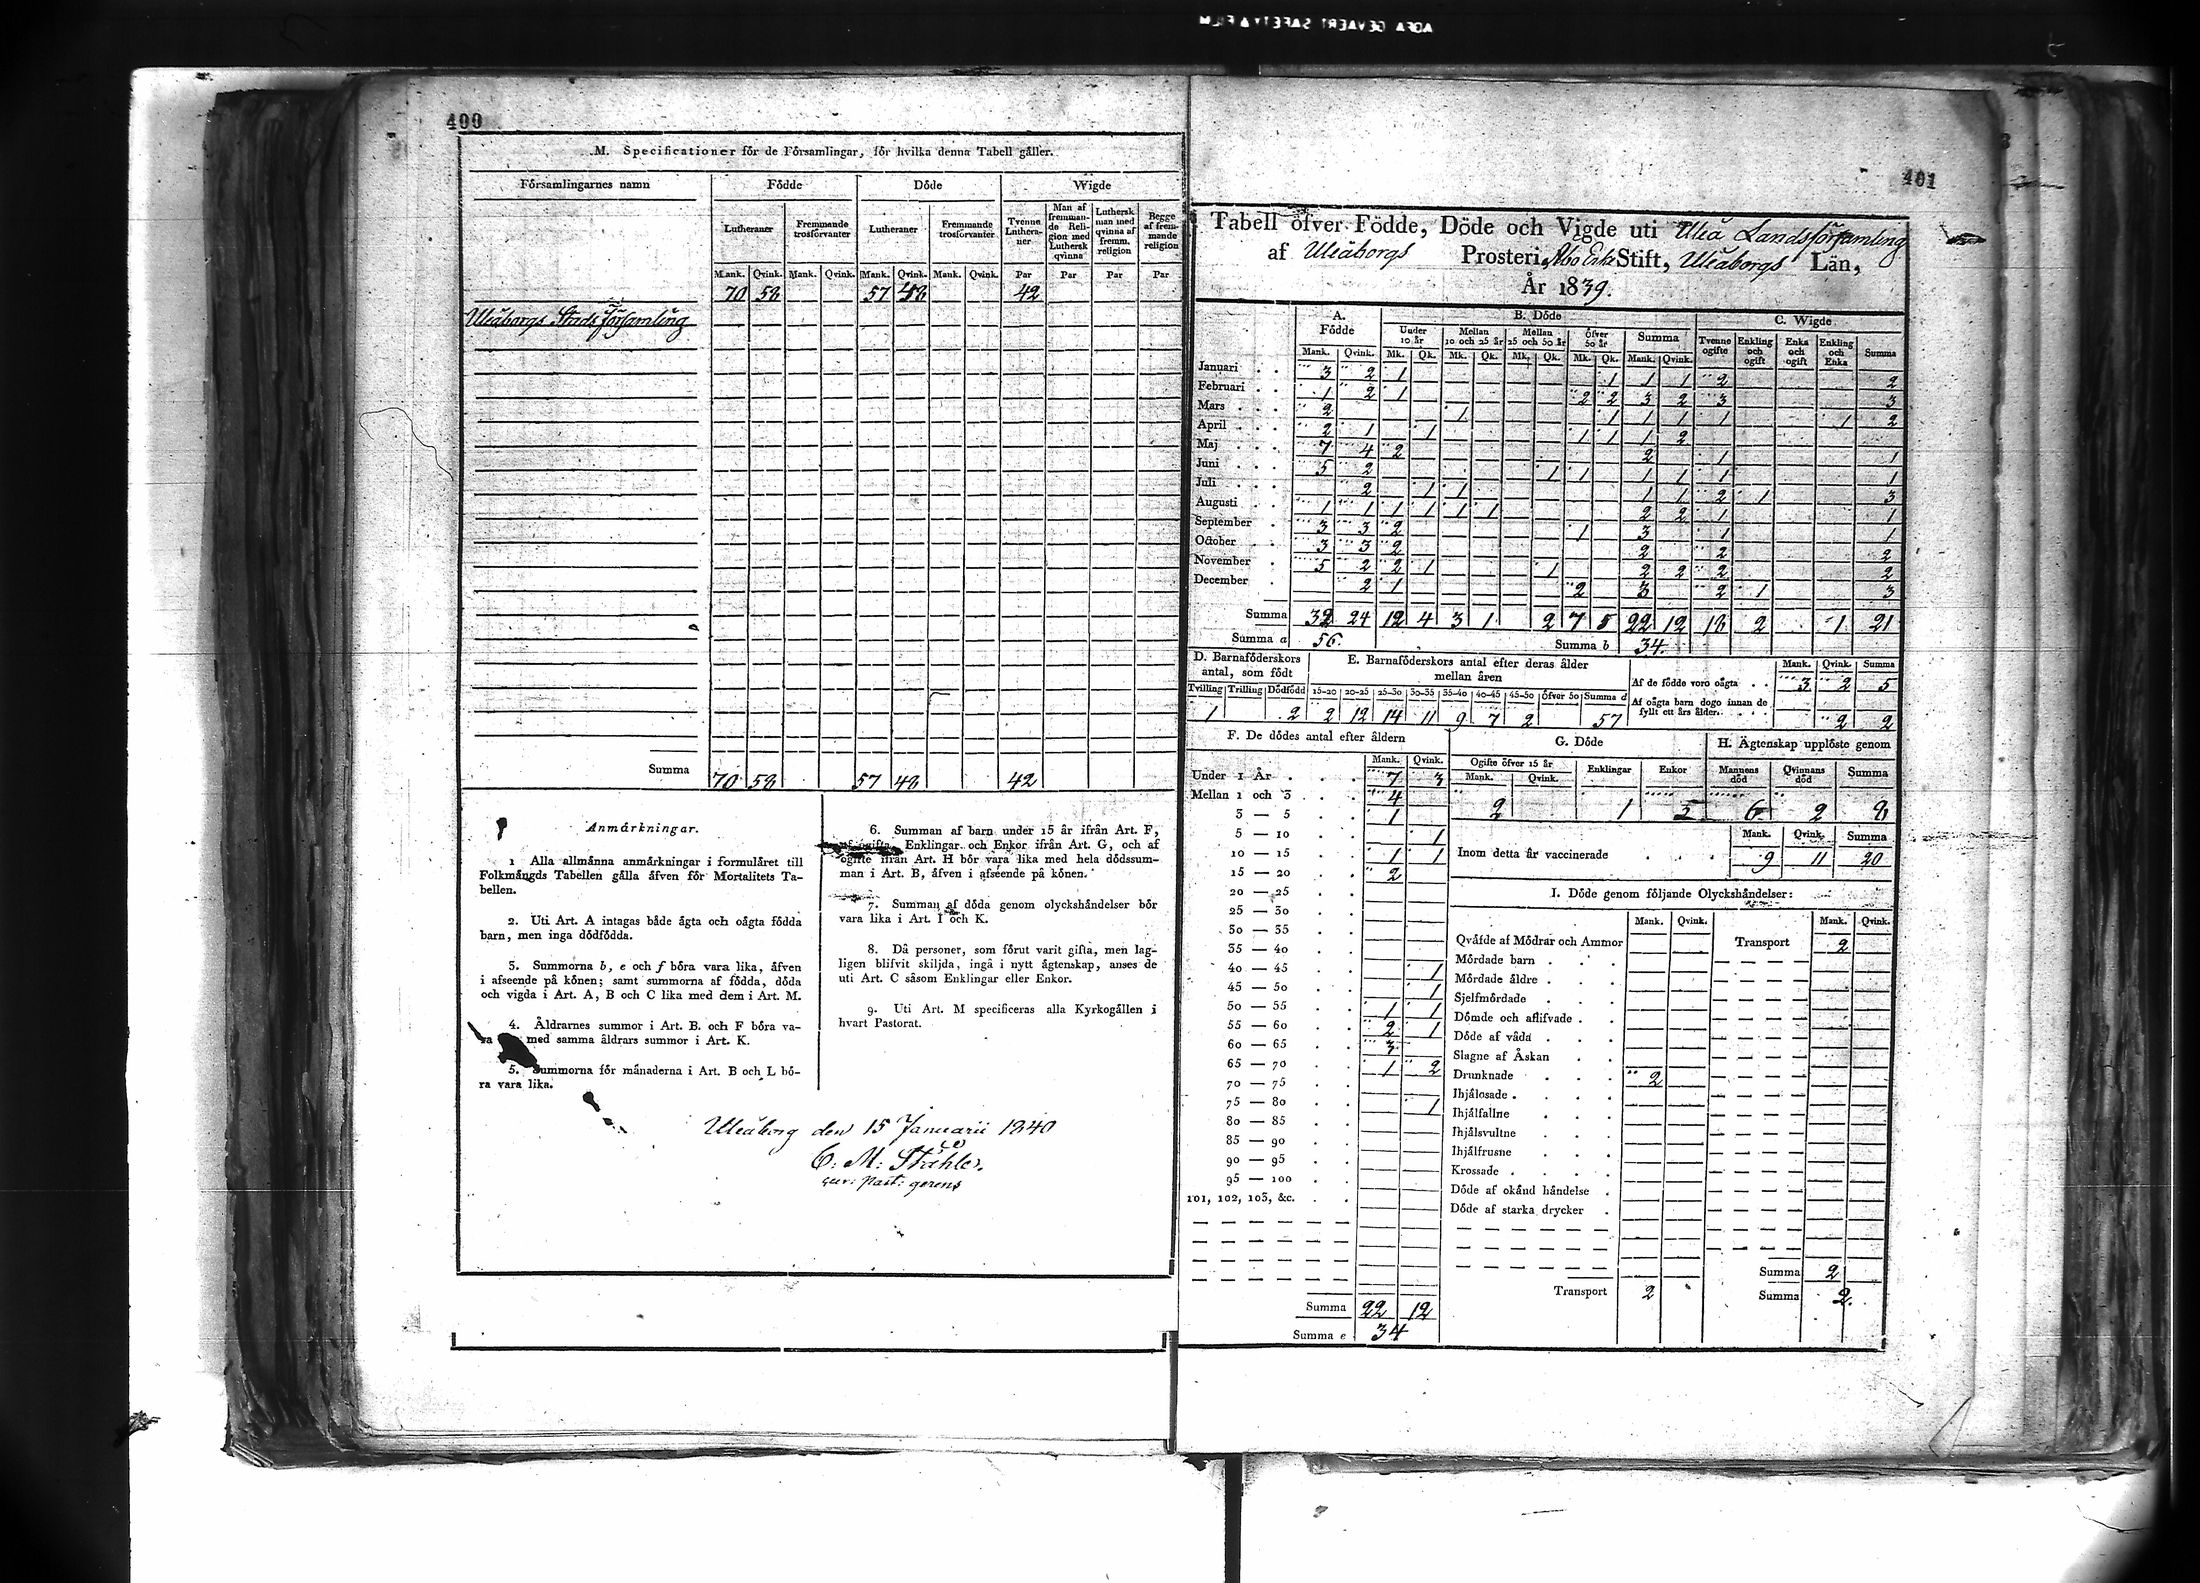 400
M. Specificationer för de Församlingar, för hvilka denna Tabell gäller.
Församlingarnes namn | Födde | Döde | Wigde
Lutheraner | Fremmande trosförvanter | Lutheraner | Fremmande trosförvanter | Tvenne Lutheraner | Man af fremmande Religion med Luthersk qvinna | Luthersk man med qvinna af fremm. religion | Begge af fremmande religion
Mank. Qvink. Mank. Qvink. Mank. Qvink. Mank. Qvink. Par Par Par Par
70 58 57 48 42
Uleåborgs Stads församling
Summa 70 58 57 48 42
Anmärkningar.
1 Alla allmänna anmärkningar i formuläret till
Folkmängds Tabellen gälla äfven för Mortalitets Ta-
bellen.
2. Uti Art. A intagas både ägta och oägta födda
barn, men inga dödfödda.
3. Summorna b, e och f böra vara lika, äfven
i afseende på könen; samt summorna af födda, döda
och vigda i Art. A, B och C lika med dem i Art. M.
4. Åldrarnes summor i Art. B. och F böra va-
ra med samma åldrars summor i Art. K.
5. Summorna för månaderna i Art. B och L bö-
ra vara lika.
6. Summan af barn under 15 år ifrån Art. F,
af ogifta, Enklingar och Enkor ifrån Art. G, och af
ogifte ifrån Art. H bör vara lika med hela dödssum-
man i Art. B, äfven i afseende på könen.
7. Summan af döda genom olyckshändelser bör
vara lika i Art. I och K.
8. Då personer, som förut varit gifta, men lag-
ligen blifvit skiljda, ingå i nytt ägtenskap, anses de
uti Art. C såsom Enklingar eller Enkor.
9. Uti Art. M specificeras alla Kyrkogällen i
hvart Pastorat.
Uleåborg den 15 Januarii 1840
C. M. Ståhle
Past: gerens
401
Tabell öfver Födde, Döde och Vigde uti Uleå Landsförsamling
af Uleåborgs Prosteri, Åbo Erke Stift, Uleåborgs Län,
År 1839.
A. Födde | B. Döde | C. Wigde
Under 10 år | Mellan 10 och 25 år | Mellan 25 och 50 år | öfver 50 år | Summa | Tvenne ogifte | Enkling och ogift | Enka och ogift | Enkling och Enka | Summa
Mank. Qvink. Mk. Qk. Mk. Qk. Mk. Qk. Mk. Qk. Mank. Qvink.
Januari 3 2 1 1 1 1 2 2
Februari 1 2 1 2 2 3 2 3 3
Mars 2 1 1 1 1 1 1 2
April 2 1 1 1 1 1 2
Maj 7 4 2 2 1 1
Juni 5 2 1 1 1 1 1 1
Juli 2 1 1 1 1 2 1 3
Augusti 1 1 1 1 1 1 2 2 1 1
September 3 3 2 1 3 1 1
October 3 3 2 2 2 2
November 5 2 2 1 1 2 2 2 2
December 2 1 2 3 2 1 3
Summa 32 24 12 4 3 1 2 7 5 22 12 18 2 1 21
Summa a 56. Summa b 34.
D. Barnaföderskors antal, som födt
Tvilling Trilling Dödfödd
1 2
E. Barnaföderskors antal efter deras ålder mellan åren
15-20 20-25 25-30 30-35 35-40 40-45 45-50 öfver 50 Summa d
2 12 14 11 9 7 2 57
Mank. Qvink. Summa
Af de födde voro oägta 3 2 5
Af oägta barn dogo innan de fyllt ett års ålder 2 2
F. De dödes antal efter åldern
Mank. Qvink.
Under 1 År 7 3
Mellan 1 och 3 4
3 — 5 1
5 — 10 1
10 — 15 1 1
15 — 20 2
20 — 25
25 — 30
30 — 35
35 — 40
40 — 45 1
45 — 50 1
50 — 55 1 1
55 — 60 2 1
60 — 65 3
65 — 70 1 2
70 — 75
75 — 80 1
80 — 85
85 — 90
90 — 95
95 — 100
101, 102, 103, &c.
Summa 22 12
Summa e 34
G. Döde
Ogifte öfver 15 år Enklingar Enkor
Mank. Qvink.
2 1 5
H. Ägtenskap upplöste genom
Mannens död Qvinnans död Summa
6 2 8
Mank. Qvink. Summa
Inom detta år vaccinerade 9 11 20
I. Döde genom följande Olyckshändelser:
Mank. Qvink. Mank. Qvink.
Qväfde af Mödrar och Ammor Transport 2
Mördade barn
Mördade äldre
Sjelfmördade
Dömde och aflifvade
Döde af våda
Slagne af Åskan
Drunknade 2
Ihjälosade
Ihjälfallne
Ihjälsvultne
Ihjälfrusne
Krossade
Döde af okänd händelse
Döde af starka drycker
Summa 2
Transport 2 Summa 2.